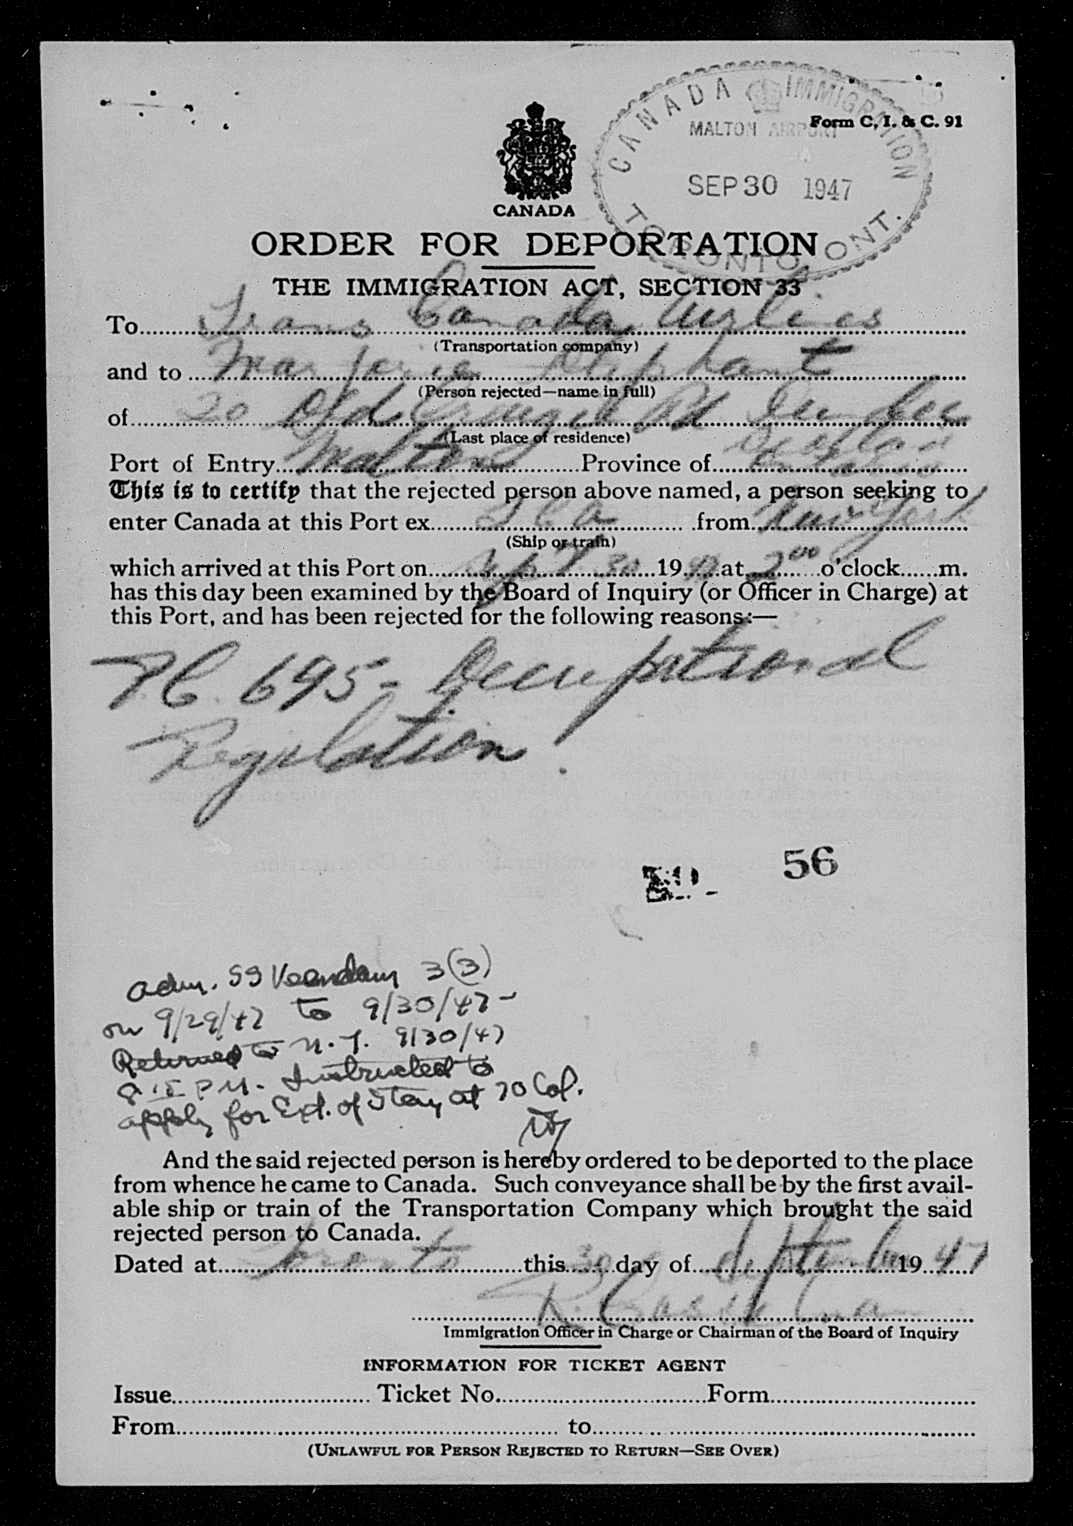 CANADA IMMIGRATION
MALTON AIRPORT
Form C. I. & C. 91
SEP 30 1947
TORONTO, ONT.
CANADA
ORDER FOR DEPORTATION
THE IMMIGRATION ACT, SECTION 33
To Trans Canada Airlines
(Transportation company)
and to Marjorie Oliphant
(Person rejected—name in full)
of 20 Old Craigie Rd Dundee
(Last place of residence)
Scotland
Port of Entry Malton Province of
This is to certify that the rejected person above named, a person seeking to
enter Canada at this Port ex T C A from New York
(Ship or train)
which arrived at this Port on Sept 30 1947 at 2 00 o'clock m.
has this day been examined by the Board of Inquiry (or Officer in Charge) at
this Port, and has been rejected for the following reasons:—
PC 695 - Occupational
Regulation.
56
adm. SS Veendam 3(3)
on 9/29/47 to 9/30/47 -
Returned to N.Y. 9/30/47
P.M. Instructed to
apply for Ext. of Stay at 70 Col.
And the said rejected person is hereby ordered to be deported to the place
from whence he came to Canada. Such conveyance shall be by the first avail-
able ship or train of the Transportation Company which brought the said
rejected person to Canada.
Dated at Toronto this 30 day of September 1947
R.
Immigration Officer in Charge or Chairman of the Board of Inquiry
INFORMATION FOR TICKET AGENT
Issue Ticket No. Form
From to
(UNLAWFUL FOR PERSON REJECTED TO RETURN—SEE OVER)